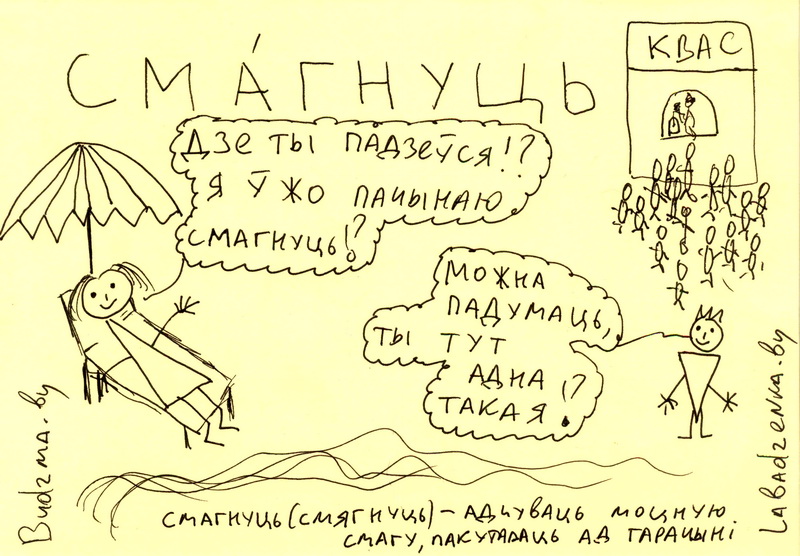 СМА́ГНУЦЬ
КВАС
ДЗЕ ТЫ ПАДЗЕЎСЯ!?
Я ЎЖО ПАЧЫНАЮ
СМАГНУЦЬ!?
МОЖНА
ПАДУМАЦЬ,
ТЫ ТУТ
АДНА
ТАКАЯ!?
Budzma.by
Labadzenka.by
СМАГНУЦЬ (СМЯГНУЦЬ) – АДЧУВАЦЬ МОЦНУЮ
СМАГУ, ПАКУТАВАЦЬ АД ГАРАЧЫНІ